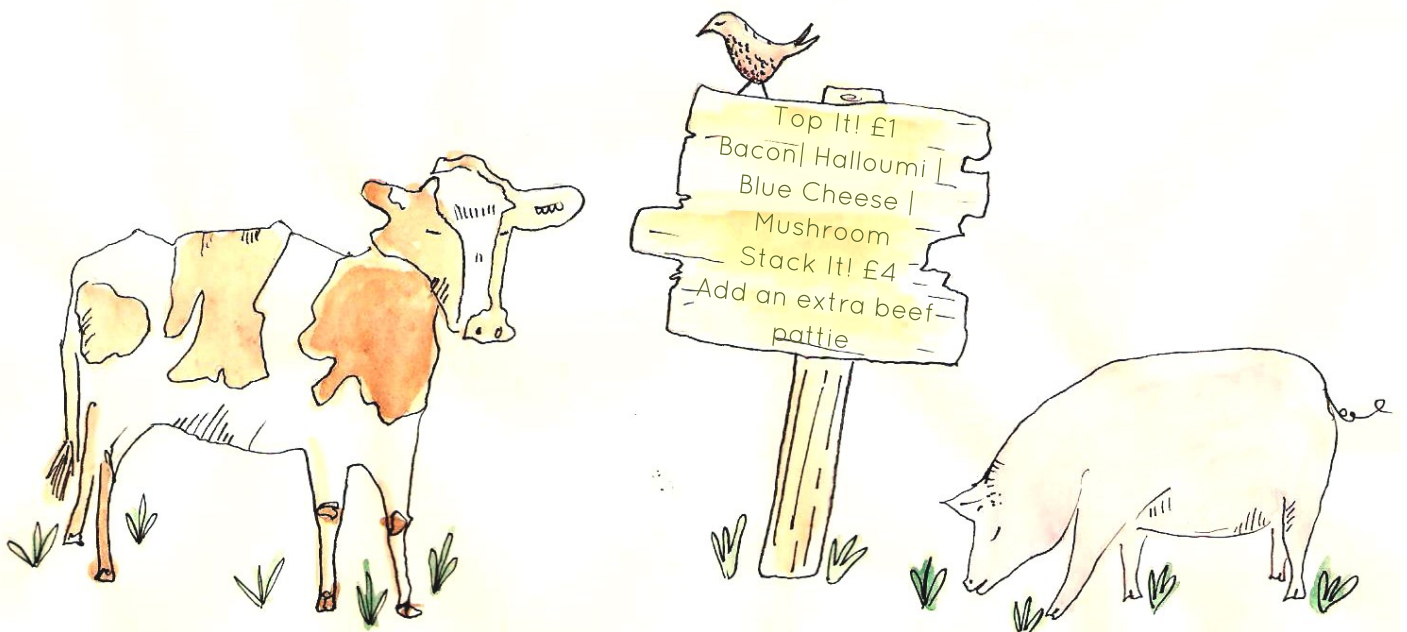 Top It! £1
Bacon| Halloumi |
Blue Cheese |
Mushroom
Stack It! £4
Add an extra beef
pattie